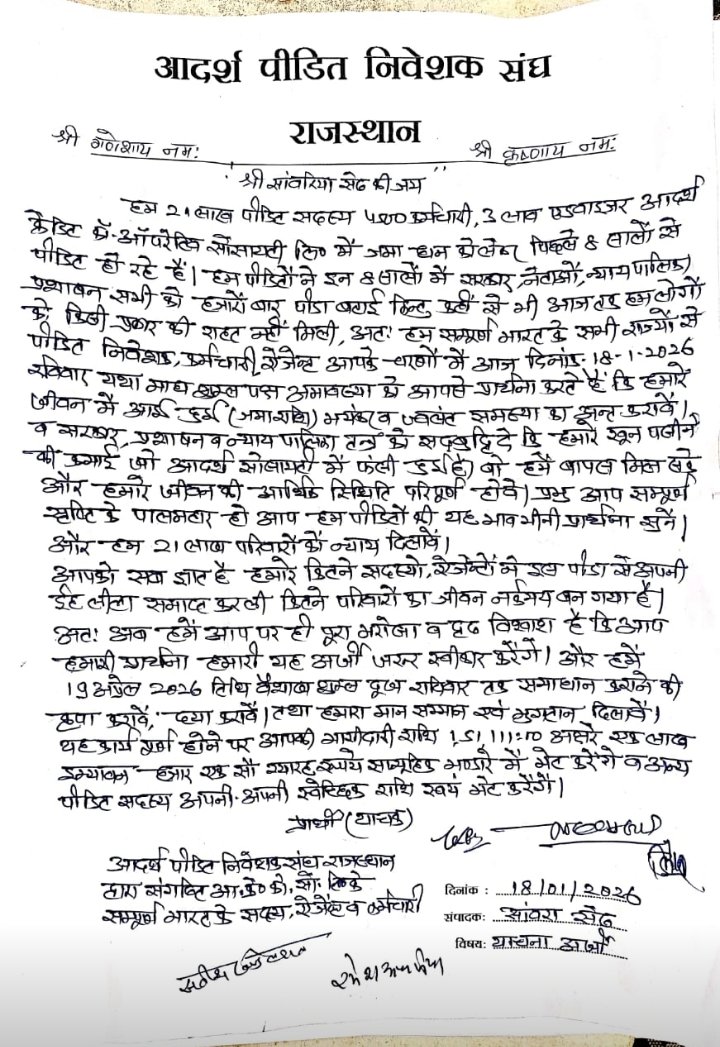 आदर्श पीडित निवेशक संघ
राजस्थान
श्री गणेशाय नमः श्री कृष्णाय नमः
"श्री सांवरिया सेठ की जय"
हम 21 लाख पीडित सदस्य 4500 कर्मचारी, 3 लाख एडवाइजर आदर्श
क्रेडिट कॉ-ऑपरेटिव सोसायटी लि० में जमा धन को लेकर पिछले 8 सालों से
पीडित हो रहे हैं। हम पीडितों ने इन 8 सालों में सरकार, नेताओं, न्याय पालिका,
प्रशासन सभी को हजारों बार पीडा बताई किन्तु कहीं से भी आज तक हम लोगों
को किसी प्रकार की राहत नहीं मिली, अतः हम सम्पूर्ण भारत के सभी राज्यों से
पीडित निवेशक, कर्मचारी, ऐजेन्ट आपके चरणों में आज दिनांक- 18-1-2026
रविवार यथा माघ पक्ष अमावस्या को आपसे प्रार्थना करते हैं कि हमारे
जीवन में आई हुई (जमाराशि) भयंकर व ज्वलंत समस्या का अन्त करावें।
व सरकार, प्रशासन व न्याय पालिका तन्त्र को सदबुद्धि दे कि हमारे खून पसीने
की कमाई जो आदर्श सोसायटी में फंसी हुई है। वो हमें वापस मिल सके
और हमारे जीवन की आर्थिक स्थिति परिपूर्ण होवे। प्रभु आप सम्पूर्ण
सृष्टि के पालनहार हो आप हम पीडितों की यह भाव भीनी प्रार्थना सुनें।
और हम 21 लाख परिवारों को न्याय दिलावें।
आपको सब ज्ञात है हमारे कितने सदस्यो, ऐजेन्टों ने इस पीडा से अपनी
ईह लीला समाप्त करली कितने परिवारों का जीवन नर्कमय बन गया है।
अतः अब हमें आप पर ही पूरा भरोसा व दृढ विश्वाश है कि आप
हमारी प्रार्थना हमारी यह अर्जी जरूर स्वीकार करेंगे। और हमें
19 अप्रेल 2026 तिथि वैशाख शुक्ल दूज रविवार तक समाधान कराने की
कृपा करावें, दया करावें। तथा हमारा मान सम्मान एवं भुगतान दिलावें।
यह कार्य पूर्ण होने पर आपकी भागीदारी राशि 1,51,111:00 अक्षरे एक लाख
इक्यावन हजार एक सौ ग्यारह रूपये भण्डारे में भेंट करेंगे व अन्य
पीडित सदस्य अपनी-अपनी स्वेच्छिक राशि स्वयं भेंट करेंगे।
प्रार्थी (याचक)
आदर्श पीडित निवेशक संघ राजस्थान
द्वारा संगठित आ. क्रे० को. सो. लि० के
सम्पूर्ण भारत के सदस्य, ऐजेन्ट व कर्मचारी
दिनांक : 18/01/2026
संपादक: सांवरा सेठ
विषय: याचना अर्जी